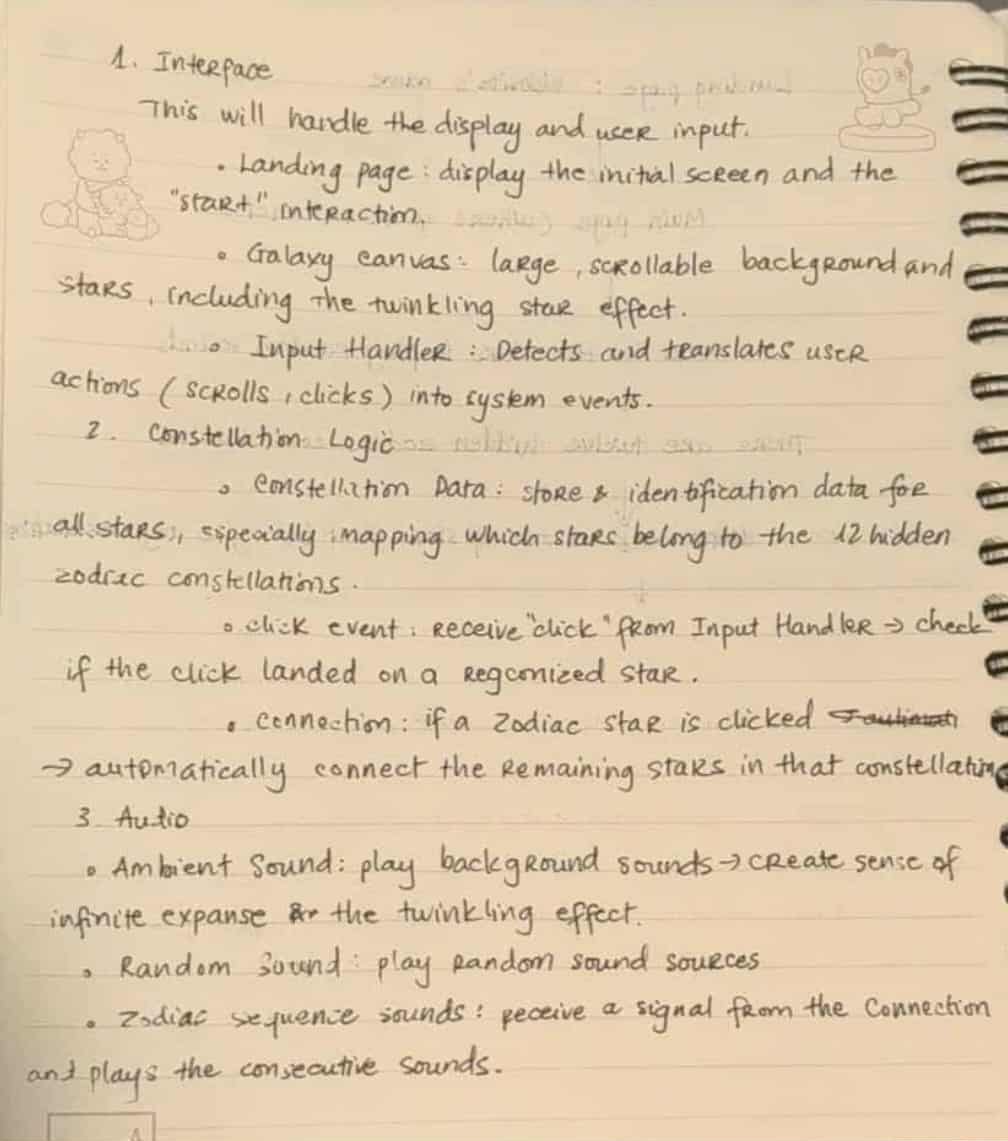 1. Interface
This will handle the display and user input.
• Landing page : display the initial screen and the
"start" interaction.
• Galaxy canvas : large, scrollable background and
stars, including the twinkling star effect.
• Input Handler : Detects and translates user
actions (scrolls, clicks) into system events.
2. Constellation Logic
• Constellation Data : store & identification data for
all stars, especially mapping which stars belong to the 12 hidden
zodiac constellations.
• click event : receive "click" from Input Handler → check
if the click landed on a regconized star.
• connection : if a zodiac star is clicked
→ automatically connect the remaining stars in that constellation
3. Audio
• Ambient Sound : play background sounds → create sense of
infinite expanse the twinkling effect.
• Random Sound : play random sound sources
• Zodiac sequence sounds : receive a signal from the Connection
and plays the consecutive sounds.